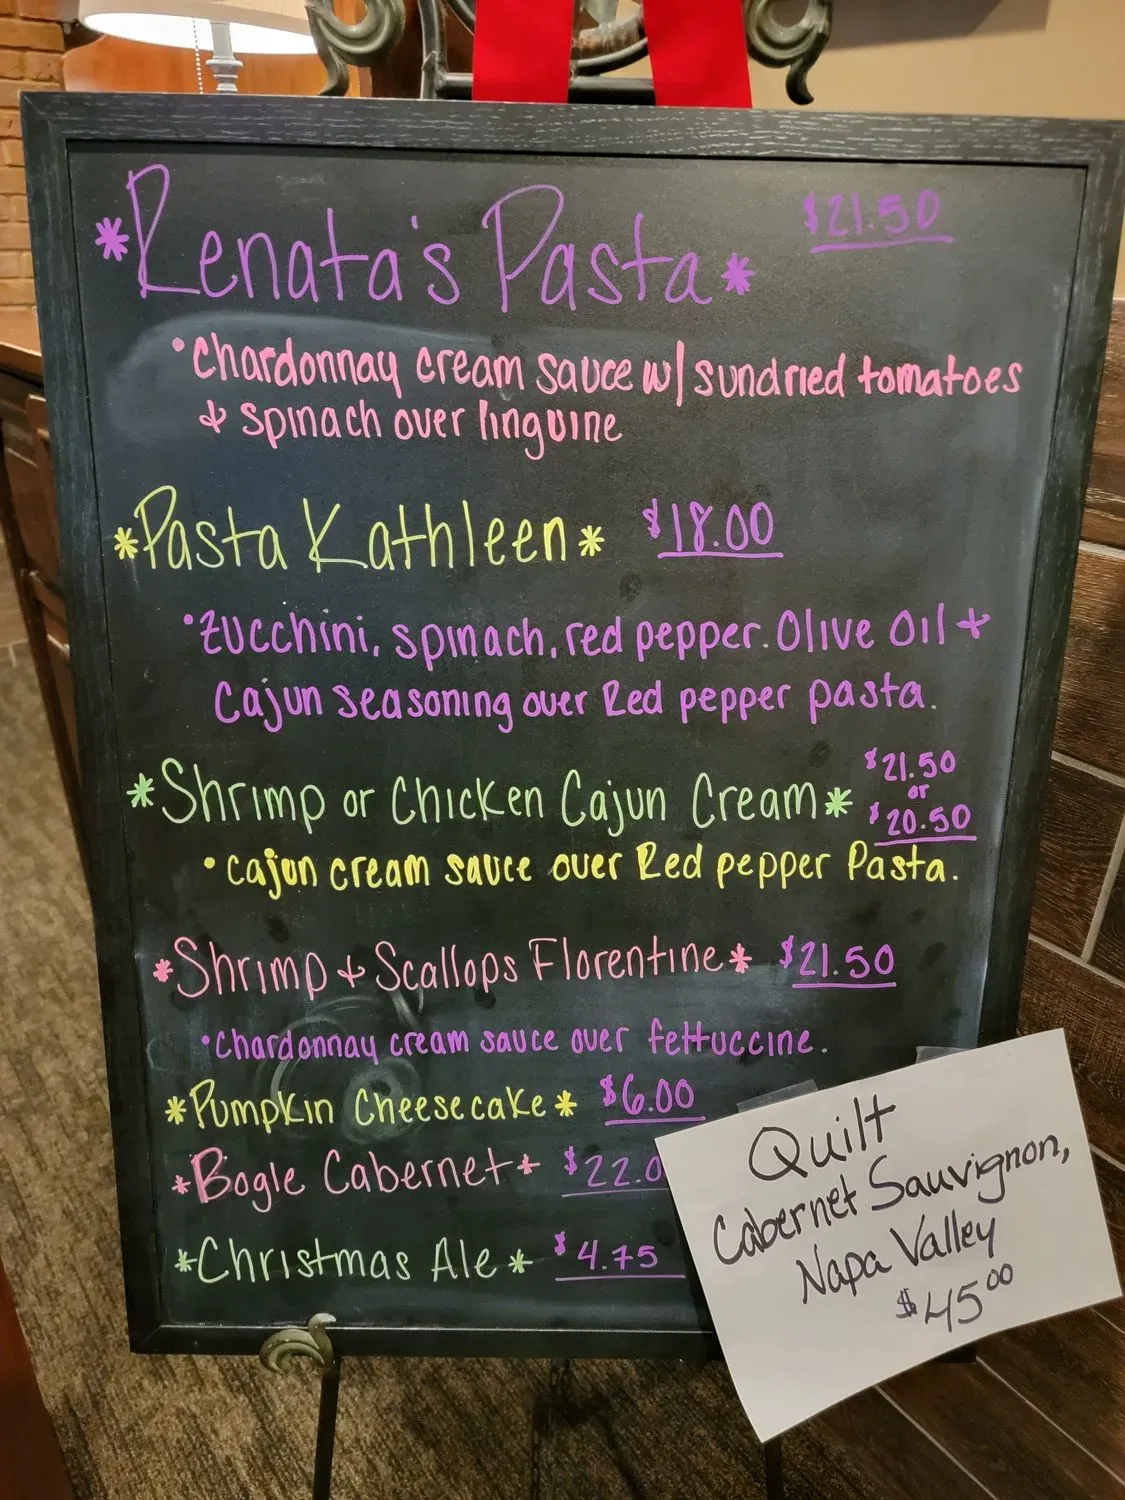 *Renata's Pasta* $21.50
•Chardonnay cream sauce w/ sundried tomatoes
& spinach over linguine
*Pasta Kathleen* $18.00
•Zucchini, spinach, red pepper. Olive Oil +
Cajun seasoning over Red pepper pasta.
*Shrimp or Chicken Cajun Cream* $21.50
or
$20.50
•Cajun cream sauce over Red pepper Pasta.
*Shrimp & Scallops Florentine* $21.50
•Chardonnay cream sauce over fettuccine.
*Pumpkin Cheesecake* $6.00
*Bogle Cabernet* $22.0
*Christmas Ale* $4.75
Quilt
Cabernet Sauvignon,
Napa Valley
$45.00